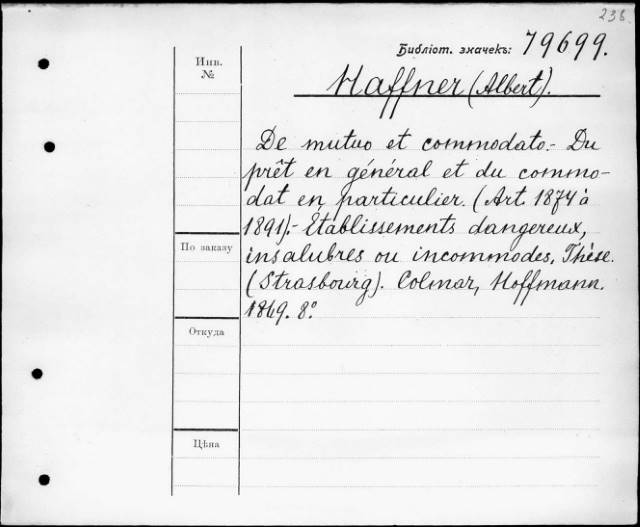 238.
Библіот. значекъ: 79699.
Инв.
№
Haffner (Albert).
De mutuo et commodato.- Du
prêt en général et du commo-
dat en particulier. (Art. 1874 à
1891).- Établissements dangereux,
insalubres ou incommodes. Thèse.
(Strasbourg). Colmar, Hoffmann.
1869. 8°.
По заказу
Откуда
Цѣна